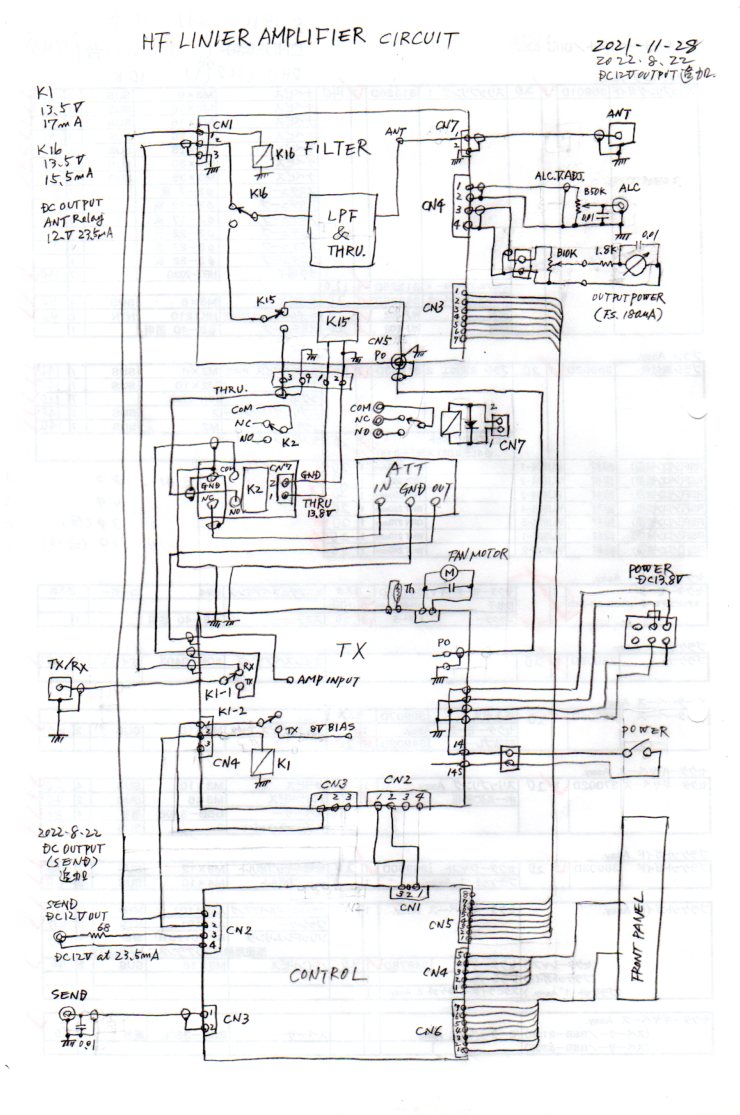 HF LINIER AMPLIFIER CIRCUIT
2021-11-28
2022.8.22
DC12V OUTPUT 追加.
K1
13.5V
17mA
K16
13.5V
15.5mA
DC OUTPUT
ANT Relay
12V 23.5mA
CN1
1
2
3
K16
FILTER
ANT
CN7
1
2
ANT
K16
LPF
&
THRU.
CN4
1
2
3
4
ALC.T.ADJ.
B50K
ALC
0.01
B10K
1.8K
0.01
OUTPUT POWER
(F.S. 180mA)
CN3
1
2
3
4
5
6
7
K15
K15
CN5
PO
THRU.
3 4 1 2
COM
NC
NO
K2
COM
NC
NO
2
1
CN7
COM
GND
NC
NO
K2
CN7
2
1
GND
THRU
13.8V
ATT
IN GND OUT
FAN MOTOR
M
Th
POWER
DC13.8V
TX
PO
TX/RX
RX
TX
K1-1
AMP INPUT
K1-2
TX 8V BIAS
1
2
3
CN4
K1
14
145
POWER
CN3
1 2 3
CN2
1 2 3 4
2022-8-22
DC OUTPUT
(SEND)
追加
SEND
DC12V OUT
68
DC12V at 23.5mA
1
2
3
4
CN2
3 2 1
CN1
8
7
6
5
4
3
2
1
CN5
CONTROL
CN4
5
4
3
2
1
FRONT PANEL
SEND
0.01
1
2
CN3
CN6
7
6
5
4
3
2
1